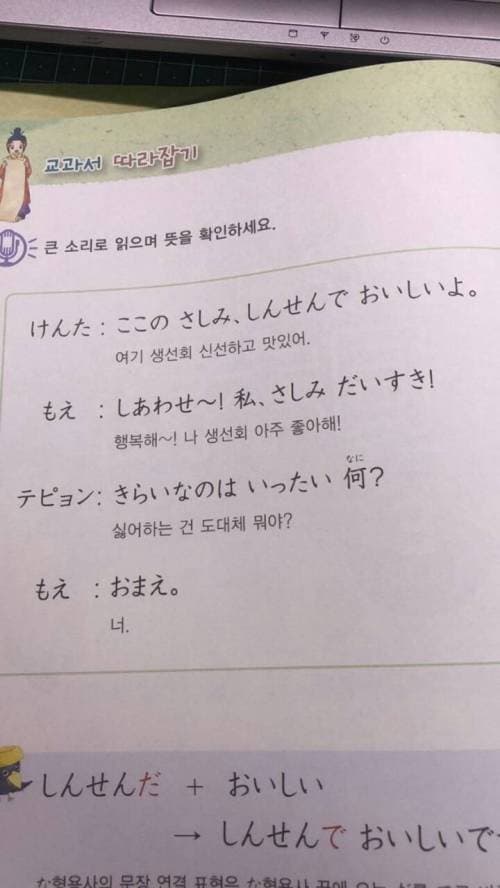 교과서 따라잡기
큰 소리로 읽으며 뜻을 확인하세요.
けんた : ここの さしみ、しんせんで おいしいよ。
여기 생선회 신선하고 맛있어.
もえ : しあわせ～! 私、さしみ だいすき!
행복해～! 나 생선회 아주 좋아해!
なに
テピョン : きらいなのは いったい 何?
싫어하는 건 도대체 뭐야?
もえ : おまえ。
너.
しんせんだ + おいしい
→ しんせんで おいしいで
な형용사의 문장 연결 표현은 な형용사